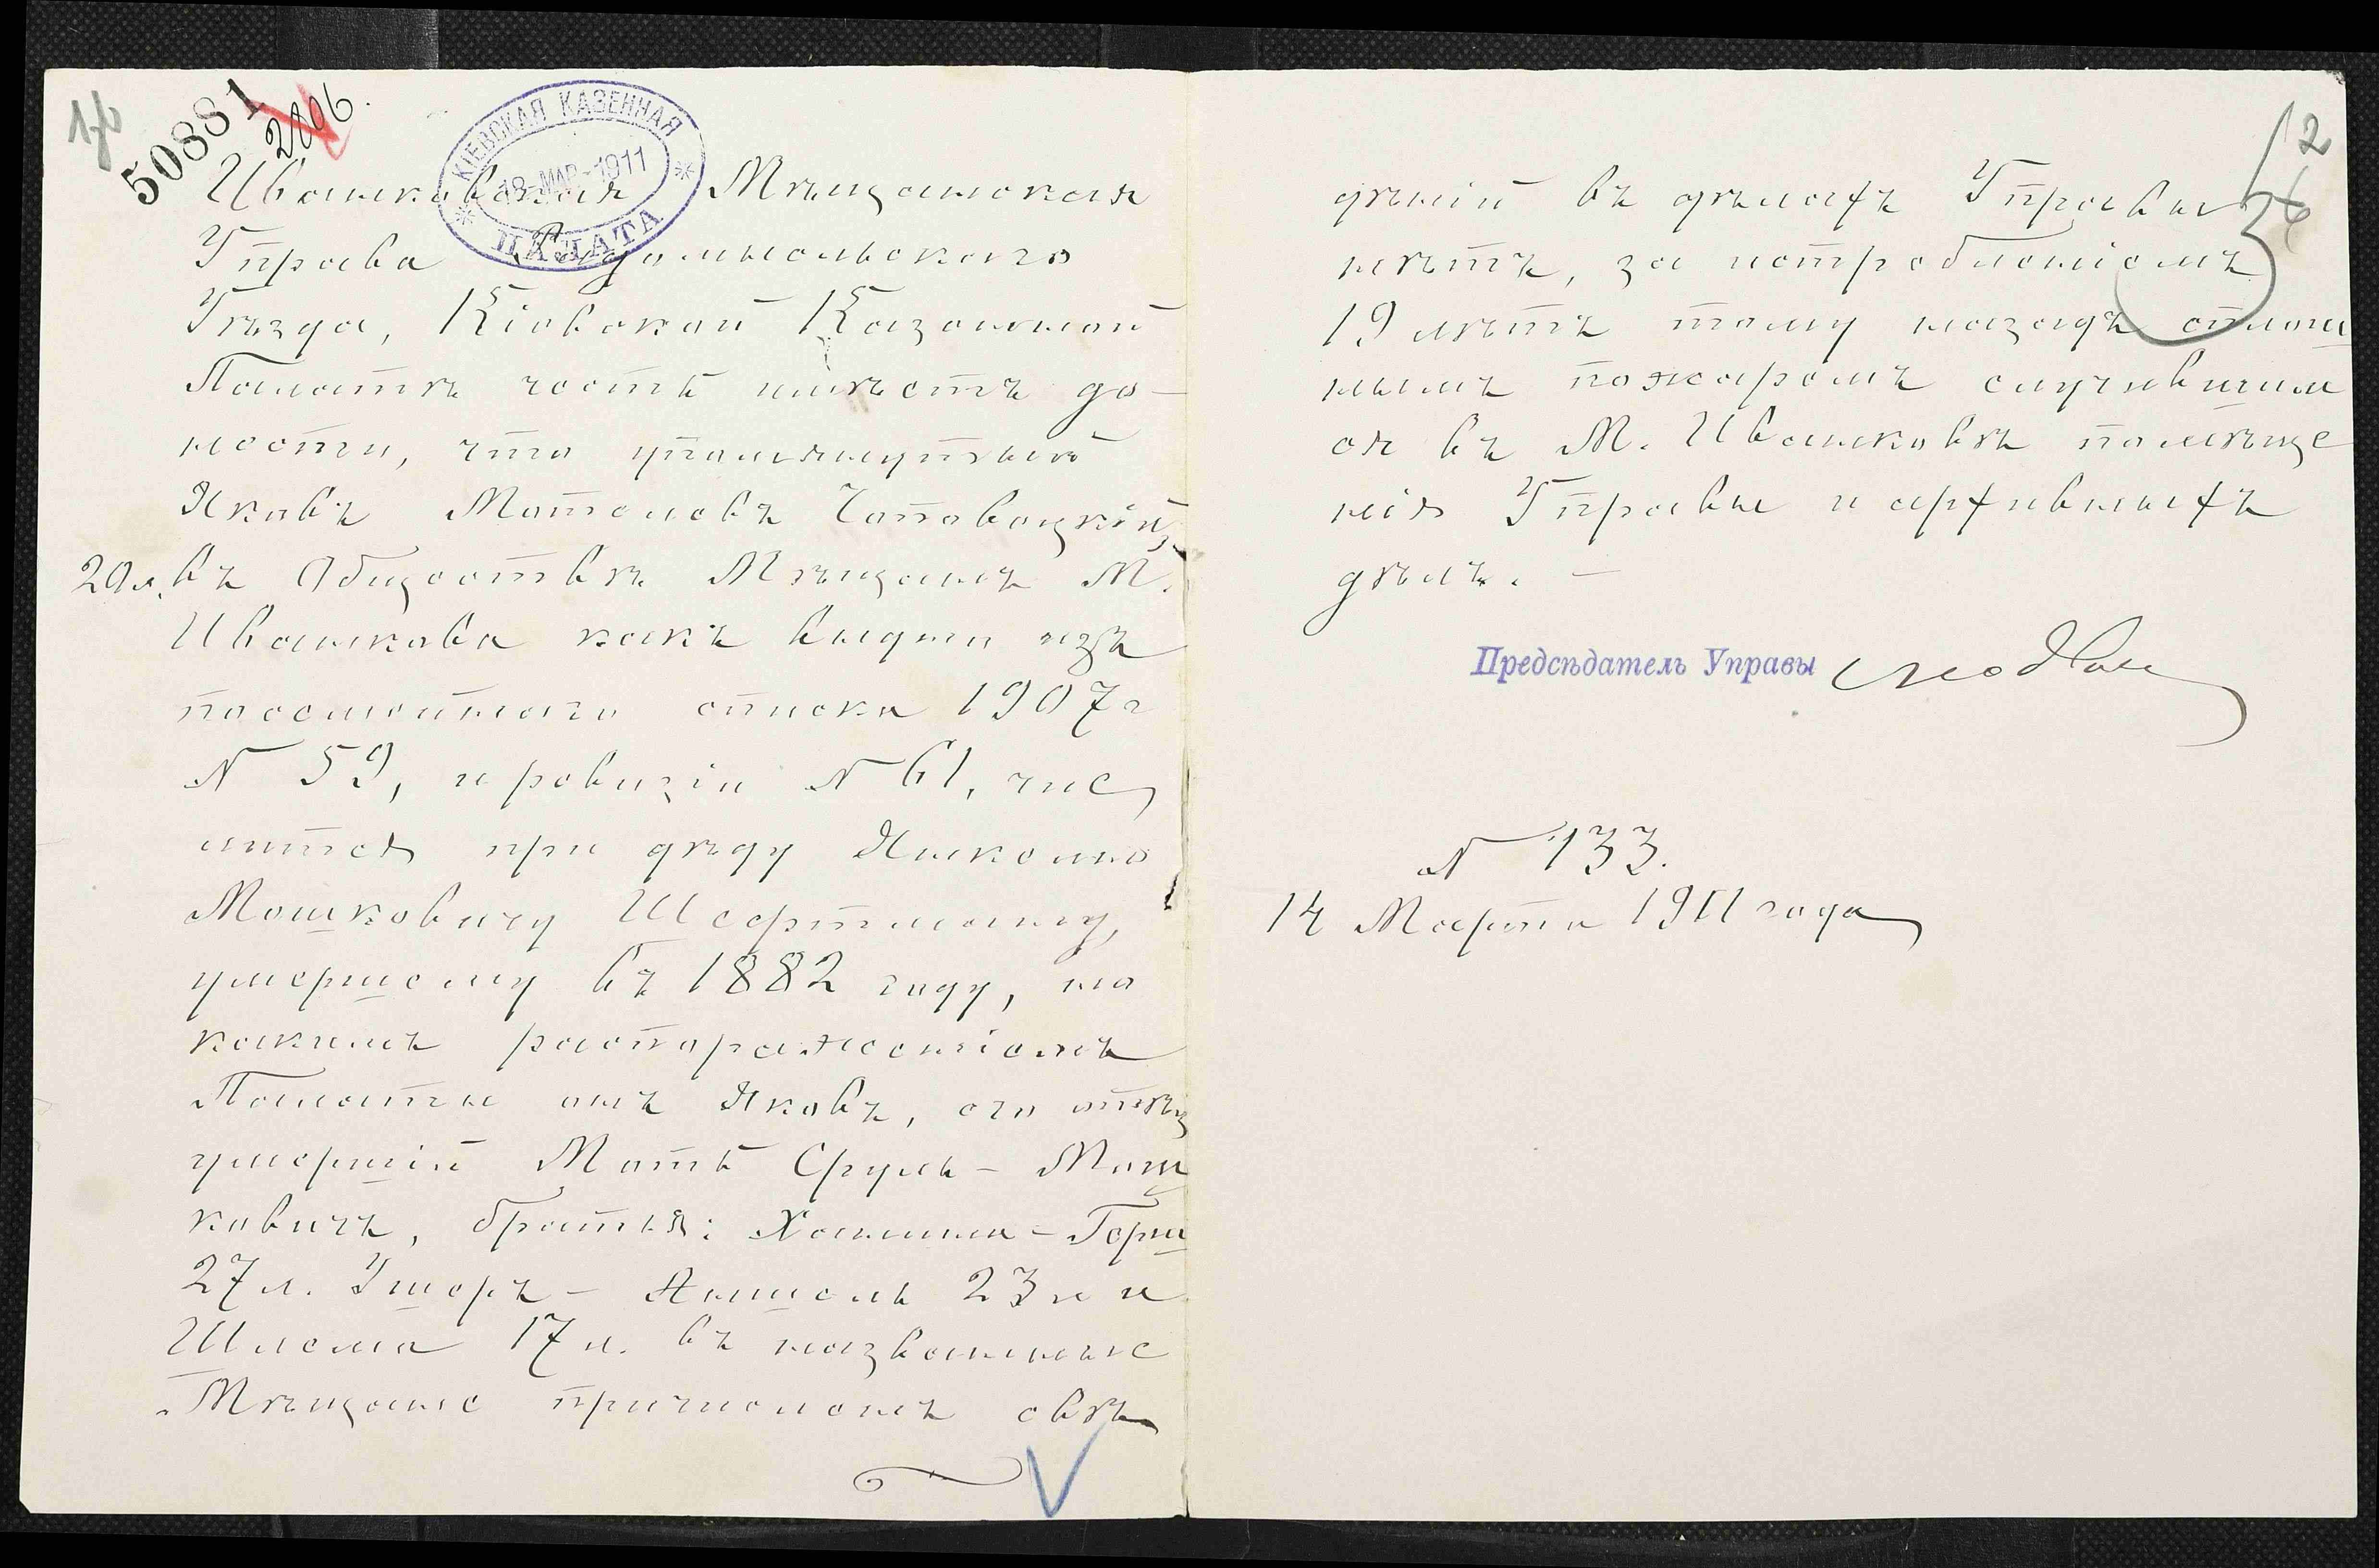 50881
2806.
КІЕВСКАЯ КАЗЕННАЯ
18-МАР-1911
ПАЛАТА
Ивашковская Мѣщанская
Управа Радомысльского
Уѣзда, Кіевской Казенной
Палатѣ честь имѣетъ до-
нести, что упомянутый
Яковъ Мотелевъ Чоповецкій,
20 л. въ Обществѣ Мѣщанъ М.
Ивашкова какъ видно изъ
посемейнаго списка 1907 г
N 59, и ревизіи N 61, чис
лится при дѣду
Мошковичу Шафтману,
умершему въ 1882 году, но
какимъ распоряженіемъ
Палаты онъ Яковъ, его отец
умершій Моть Сруль-Мош
ковичъ, братья: Хаимъ-Герш
27 л. Ушеръ-Аншель 23 л и
Шлема 17 л. въ названные
Мѣщане причисленъ свѣ
2
дѣній въ дѣлахъ Управы
нѣтъ, за истребленіемъ
19 лѣтъ тому назадъ
нымъ пожаромъ случившим
ся въ М. Ивашковѣ помѣще
нія Управы и архивныхъ
дѣлъ. —
Предсѣдатель Управы
N 133.
14 Марта 1911 года